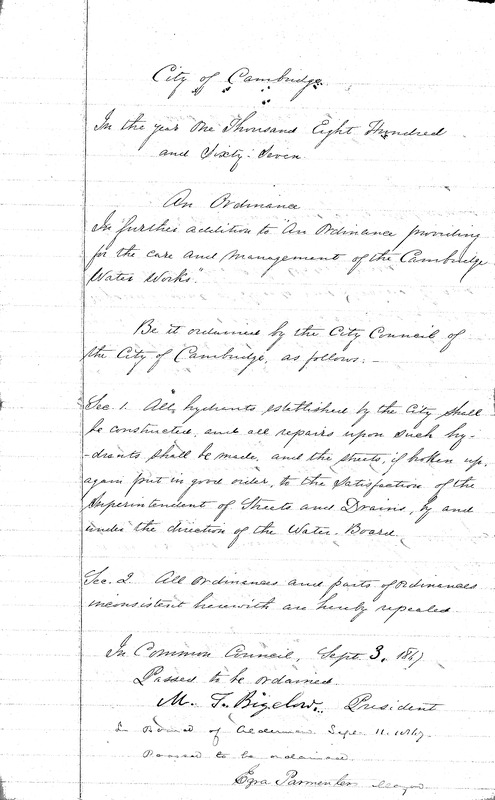 City of Cambridge.
In the year One Thousand Eight Hundred
and Sixty-Seven.
An Ordinance
In further addition to "An Ordinance providing
for the care and management of the Cambridge
Water Works."
Be it ordained by the City Council of
the City of Cambridge, as follows:-
Sec. 1. All hydrants established by the City shall
be constructed, and all repairs upon such hy-
-drants shall be made, and the streets, if broken up,
again put in good order, to the satisfaction of the
Superintendent of Streets and Drains, by and
under the direction of the Water-Board.
Sec. 2. All ordinances and parts of ordinances
inconsistent herewith are hereby repealed.
In Common Council, Sept. 3, 1867
Passed to be ordained.
M. F. Bigelow, President
In Board of Aldermen Sept. 11. 1867.
Passed to be ordained.
Ezra Parmenter Mayor.